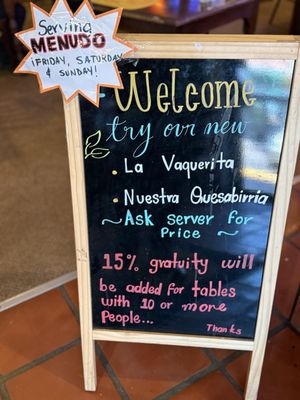 Serving
MENUDO
¡FRIDAY, SATURDAY
& SUNDAY!
Welcome
try our new
• La Vaquerita
• Nuestra Quesabirria
~ Ask server for
Price ~
15% gratuity will
be added for tables
with 10 or more
People...
Thanks